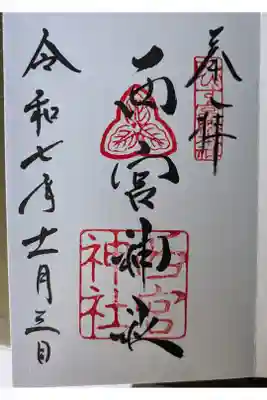 奉拝
西宮神社
西宮神社
令和七年十一月三日